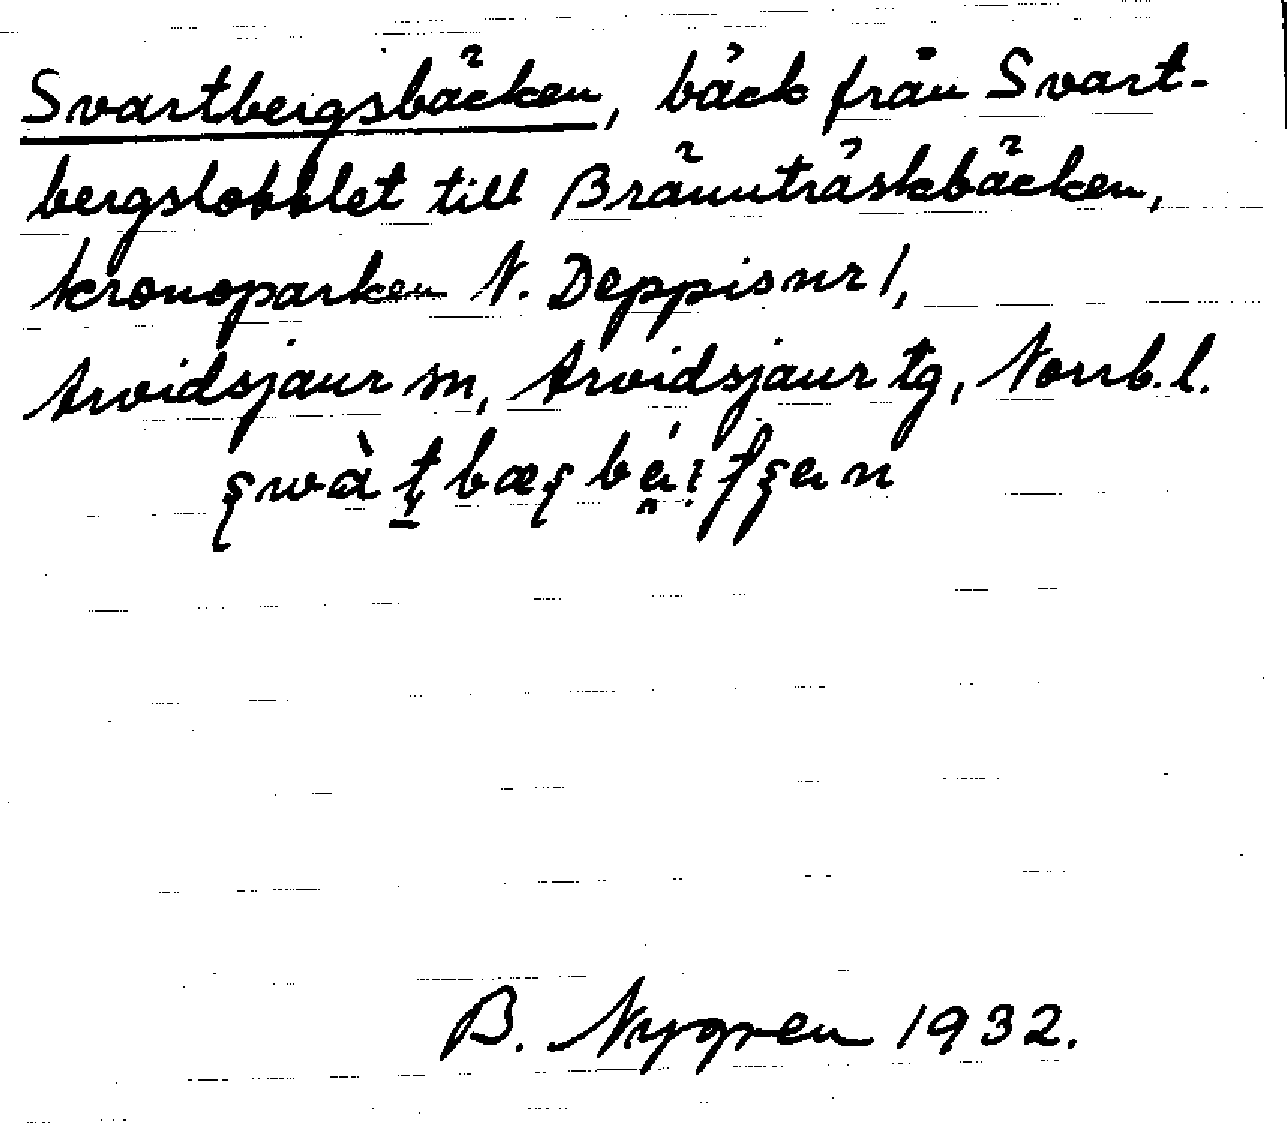 Svartbergsbäcken, bäck från Svart-
bergslobblet till Brännträskbäcken,
kronoparken N. Deppis nr 1,
Arvidsjaur sn, Arvidsjaur tg, Norrb. l.
B. Nygren 1932.